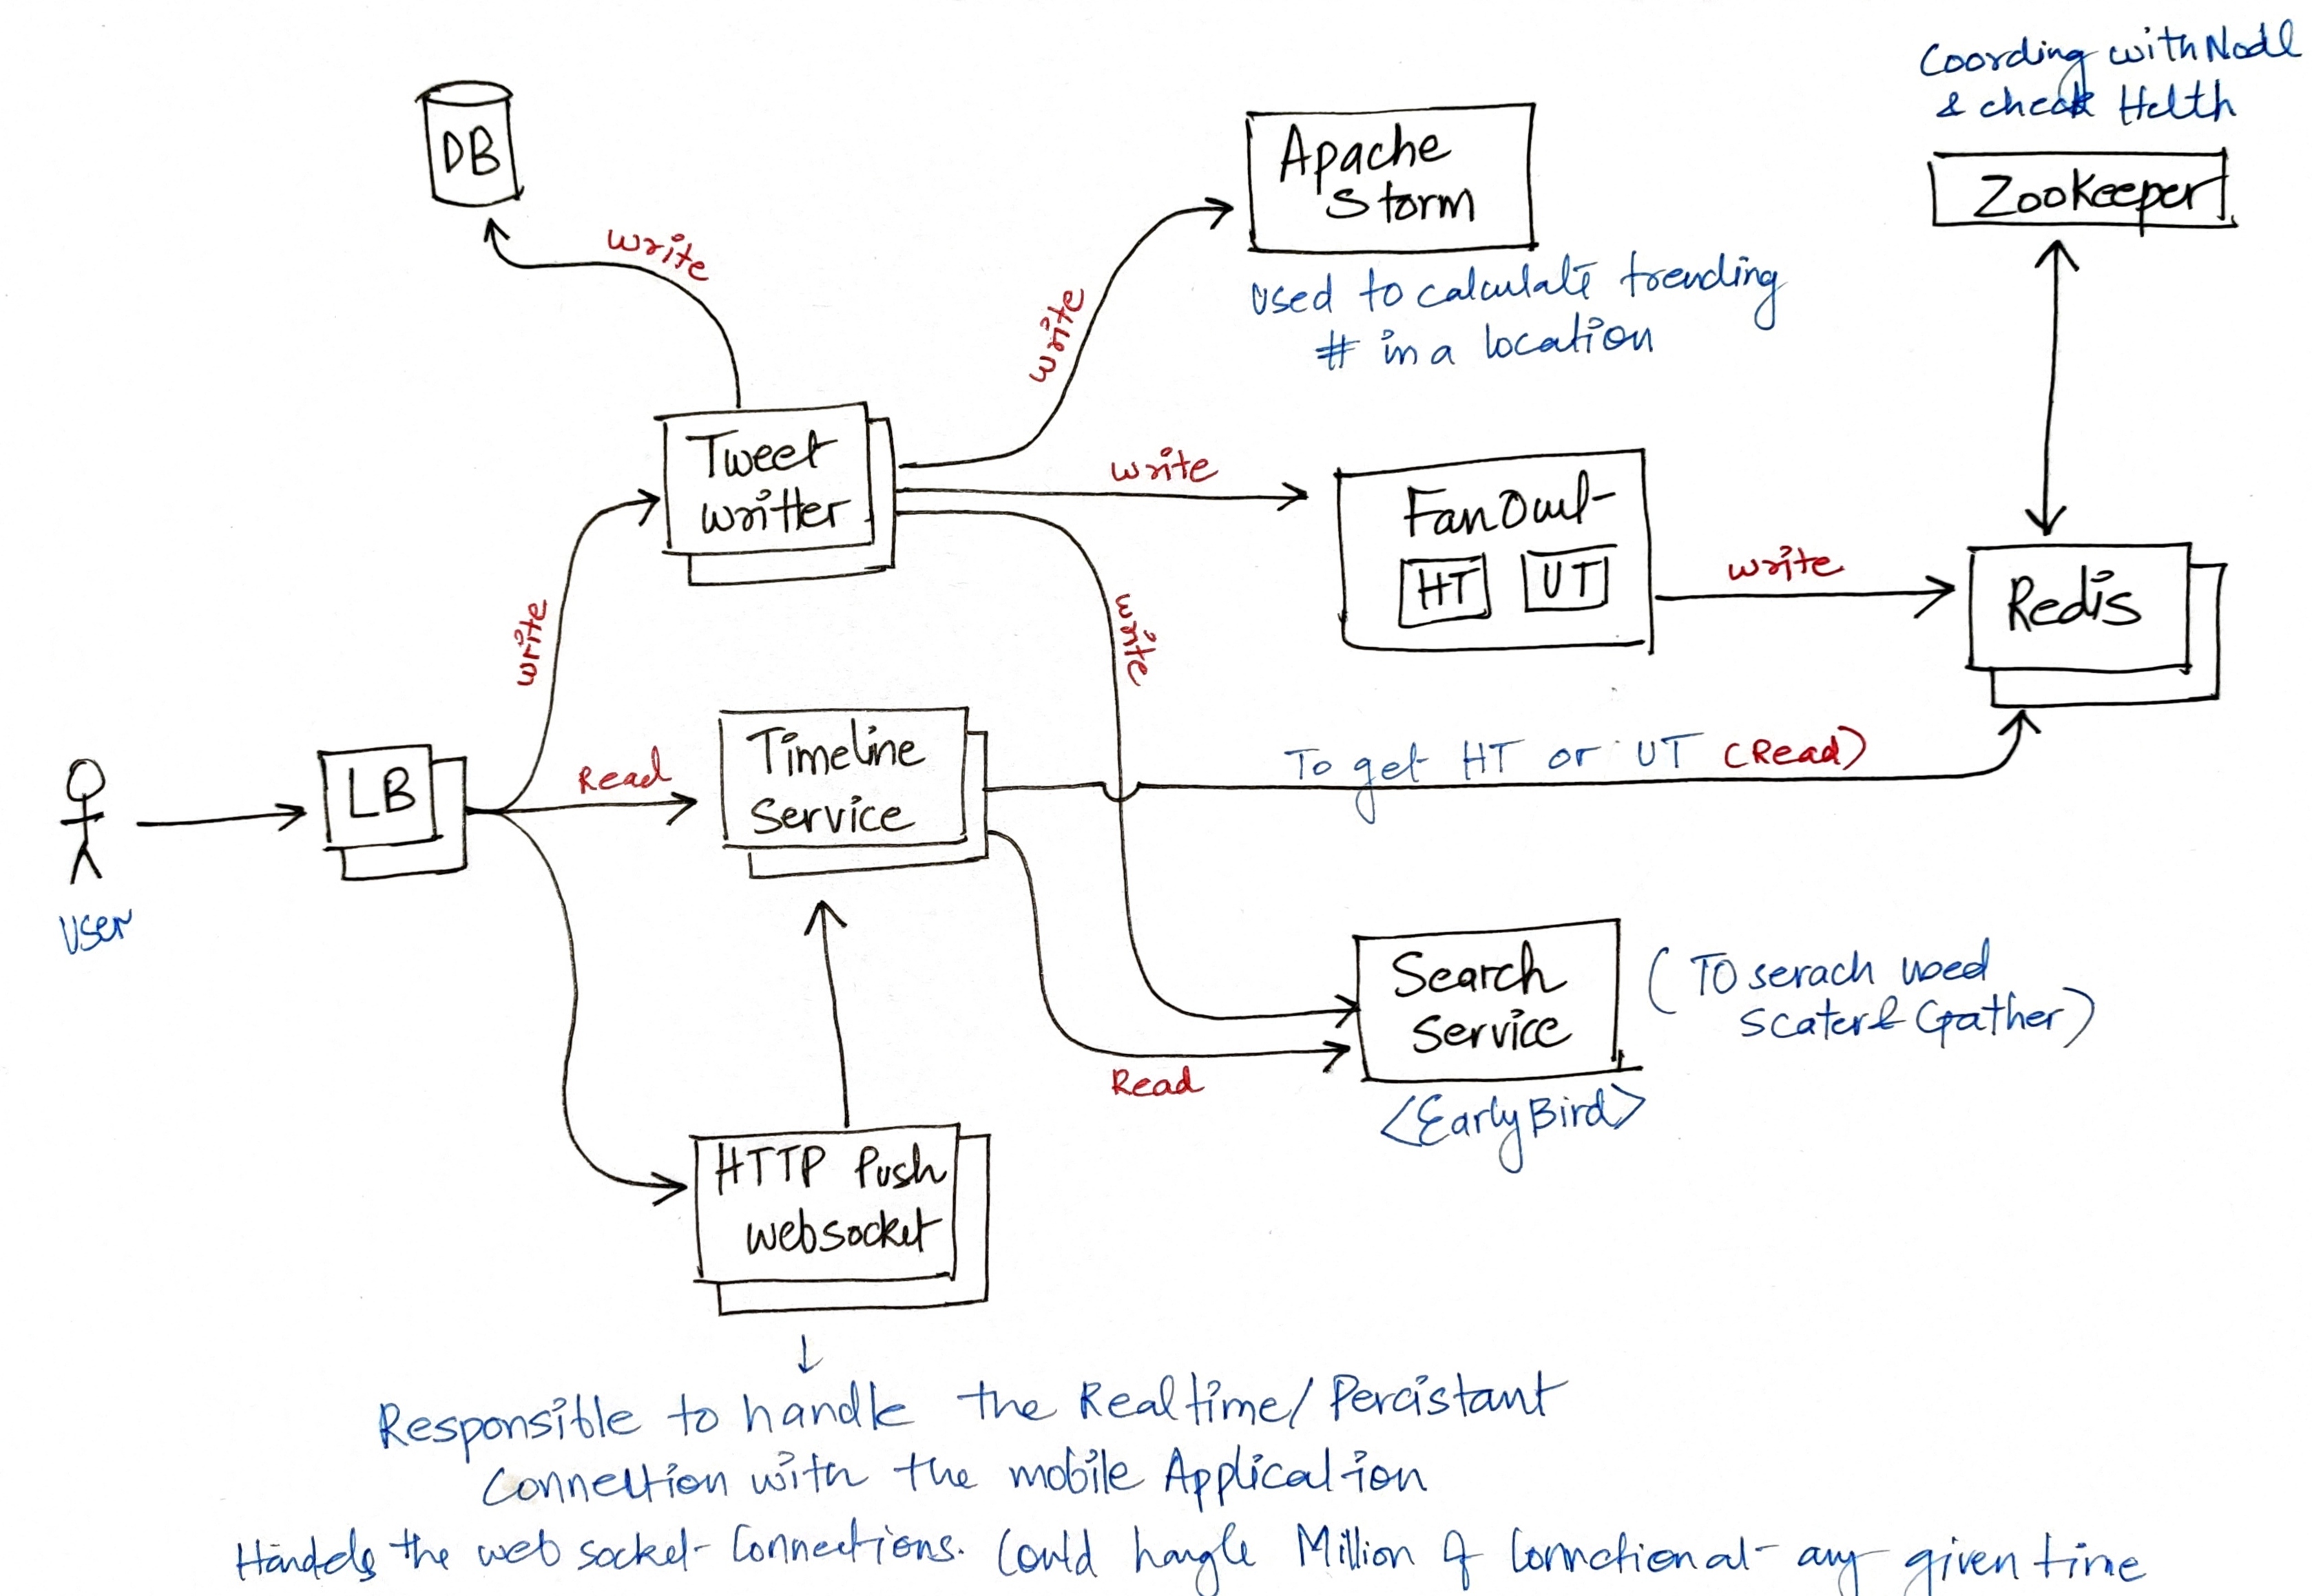 Coording with Node
& check Helth
ZooKeeper
DB
Apache
Storm
write
Used to calculate trending
# in a location
write
Tweet
writter
write
FanOut
HT UT
write
Redis
write
write
Timeline
Service
To get HT or UT (Read)
Read
LB
User
Search
Service
(To serach used
Scater& Gather)
Read
<EarlyBird>
HTTP Push
websocket
Responsible to handle the Realtime/Percistant
Connection with the mobile Application
Handels the web socket Connections. Could hangle Million of Connctional any given time